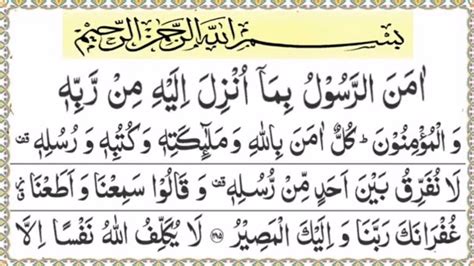 بِسْمِ اللهِ الرَّحْمٰنِ الرَّحِيْمِ
اٰمَنَ الرَّسُوْلُ بِمَاۤ اُنْزِلَ اِلَيْهِ مِنْ رَّبِّهٖ
وَ الْمُؤْمِنُوْنَ ؕ كُلٌّ اٰمَنَ بِاللّٰهِ وَ مَلٰٓئِكَتِهٖ وَ كُتُبِهٖ وَ رُسُلِهٖ ۫
لَا نُفَرِّقُ بَيْنَ اَحَدٍ مِّنْ رُّسُلِهٖ ۫ وَ قَالُوْا سَمِعْنَا وَ اَطَعْنَا ٘ۗ
غُفْرَانَكَ رَبَّنَا وَ اِلَيْكَ الْمَصِيْرُ ﴿۲۸۵﴾ لَا يُكَلِّفُ اللّٰهُ نَفْسًا اِلَّا